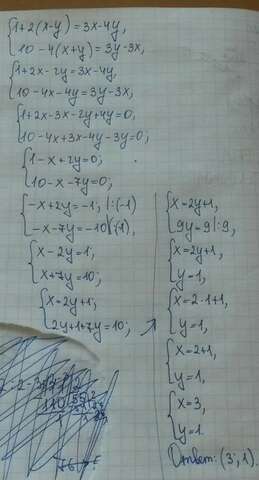 {1+2(x-y)=3x-4y,
10-4(x+y)=3y-3x,
{1+2x-2y=3x-4y,
10-4x-4y=3y-3x,
{1+2x-3x-2y+4y=0;
10-4x+3x-4y-3y=0;
{1-x+2y=0;
10-x-7y=0;
{-x+2y=-1; |:(-1)
-x-7y=-10 |:(-1),
{x-2y=1;
x+7y=10;
{x=2y+1;
2y+1+7y=10;
{x=2y+1,
9y=9|:9,
{x=2y+1,
y=1,
{x=2·1+1,
y=1,
{x=2+1,
y=1,
{x=3,
y=1.
Ответ: (3;1).